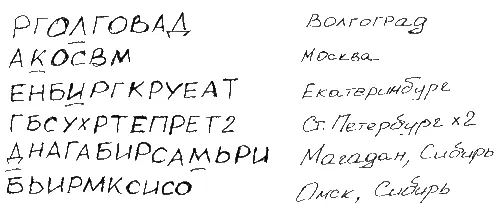 РГОЛГОВАД Волгоград
АКОСВМ Москва
ЕНБИРГКРУЕАТ Екатеринбург
ГБСУХРТЕПРЕТ2 Ст. Петербург x2
ДНАГАБИРСАМЬРИ Магадан, Сибирь
БЬИРМКСИСО Омск, Сибирь